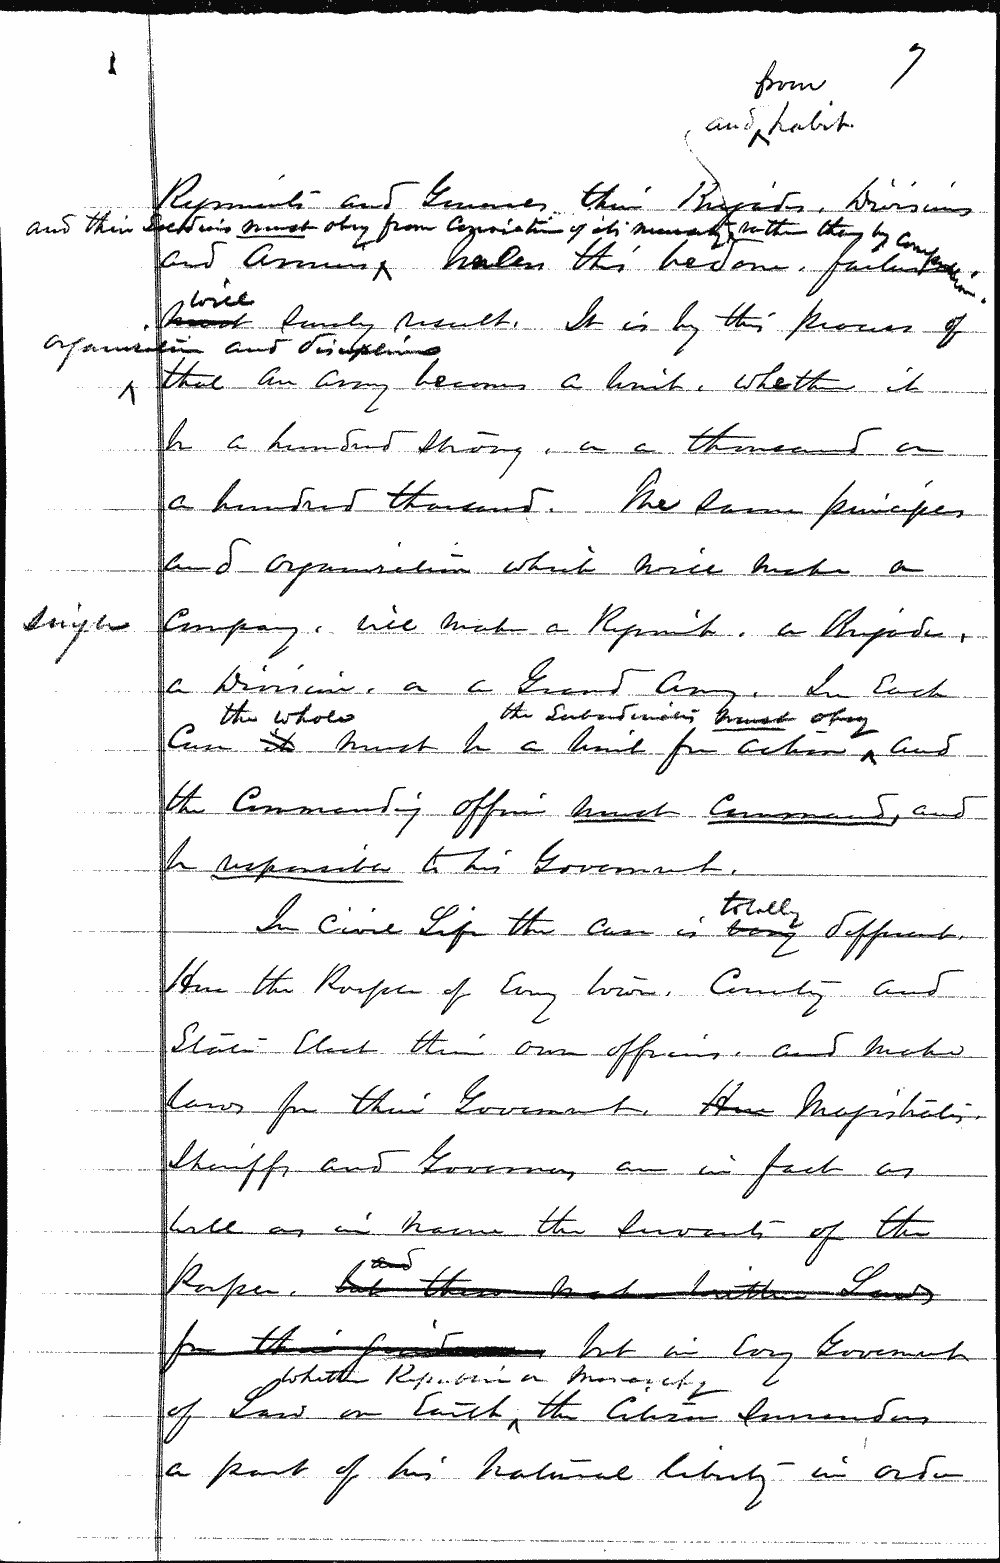 1
7
from
and habit.
Regiments and Generals their Brigades, Divisions
and their Soldiers must obey from Conviction of its necessity rather than by Compulsion.
and Armies Unless this be done, failure
will
must surely result. It is by this process of
organization and discipline
that an army becomes a unit, whether it
be a hundred strong, or a thousand or
a hundred thousand. The same principles
and organization which will make a
single
Company, will make a Regiment, a Brigade,
a Division, or a Grand Army. In Each
the whole the Subordinates must obey
Case it must be a unit for action and
the Commanding officer must Command, and
be responsible to his Government.
totally
In Civil Life the case is very different.
Here the People of Every town, County and
State Elect their own officers, and make
laws for their Government. Here Magistrates,
Sheriffs and Governors are in fact as
well as in name the Servants of the
and
People. but these make written Laws
for their guidance, but in Every Government
Whether Republic or Monarchy
of Law on Earth the Citizen surrenders
a part of his natural liberty in order